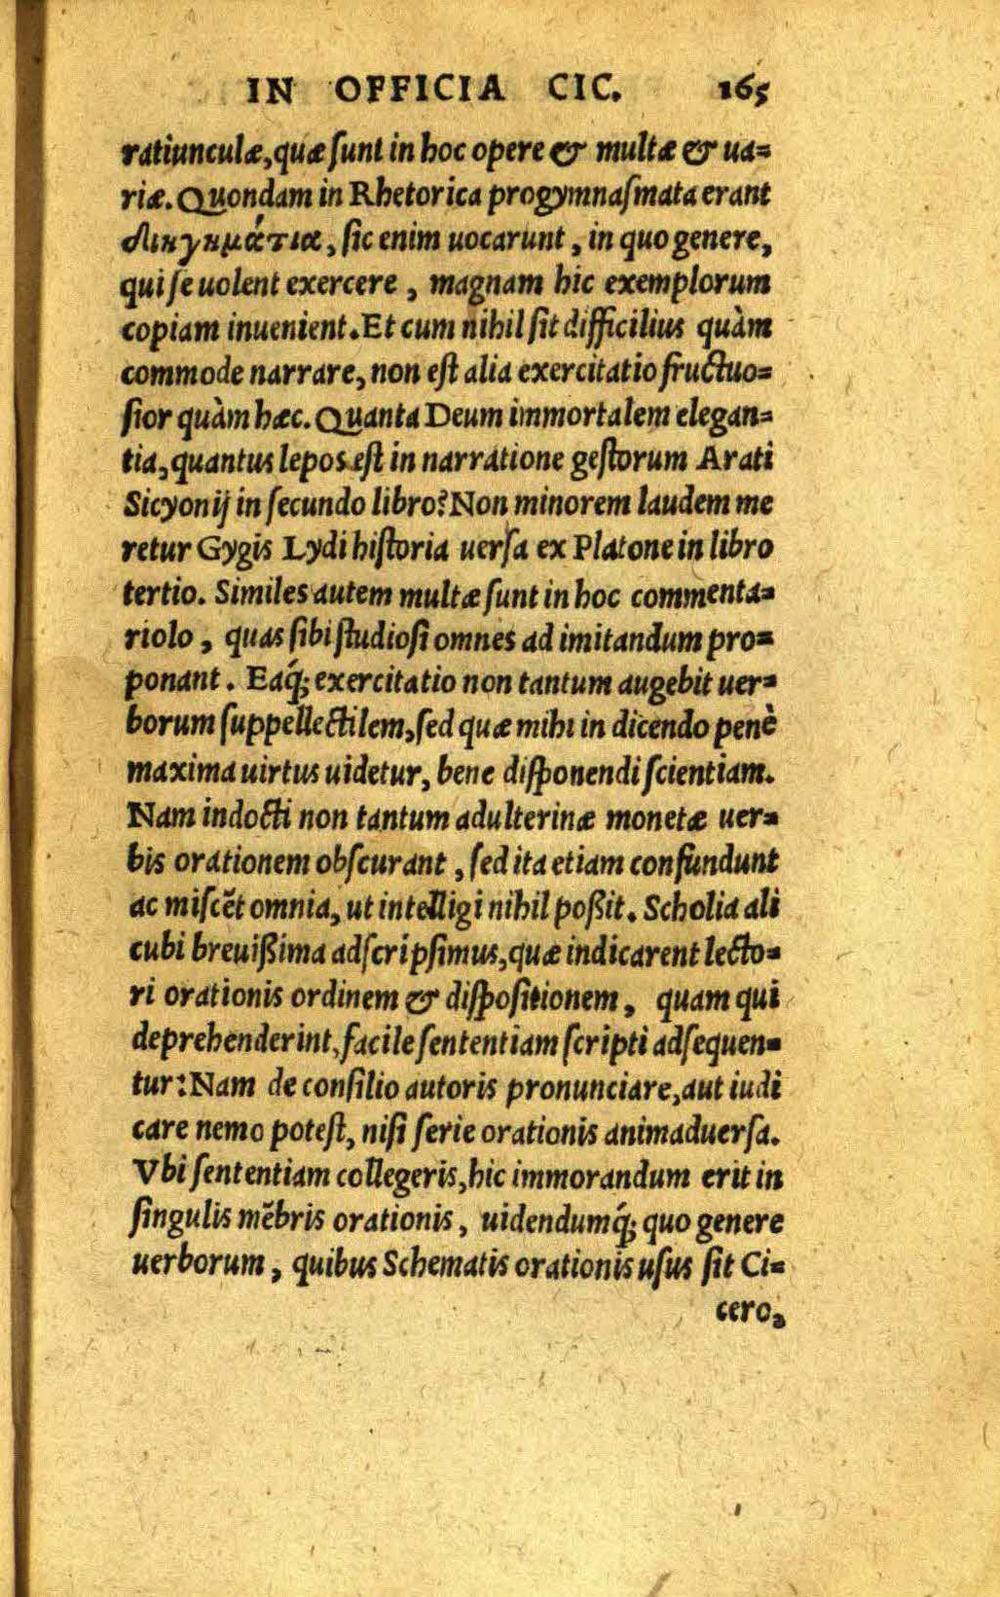 IN OFFICIA CIC. 165
ratiunculæ, quæ ſunt in hoc opere & multæ & ua=
riæ. Quondam in Rhetorica progymnaſmata erant
διηγημάτια, ſic enim uocarunt, in quo genere,
qui ſe uolent exercere, magnam hic exemplorum
copiam inuenient. Et cum nihil ſit difficilius quàm
commode narrare, non eſt alia exercitatio fructuo=
ſior quàm hæc. Quanta Deum immortalem elegan=
tia, quantus lepos eſt in narratione geſtorum Arati
Sicyonij in ſecundo libro? Non minorem laudem me
retur Gygis Lydi hiſtoria uerſa ex Platone in libro
tertio. Similes autem multæ ſunt in hoc commenta=
riolo, quas ſibi ſtudioſi omnes ad imitandum pro=
ponant. Eaq́; exercitatio non tantum augebit uer=
borum ſuppellectilem, ſed quæ mihi in dicendo penè
maxima uirtus uidetur, bene diſponendi ſcientiam.
Nam indocti non tantum adulterinæ monetæ uer=
bis orationem obſcurant, ſed ita etiam confundunt
ac miſcẽt omnia, ut intelligi nihil poßit. Scholia ali
cubi breuißima adſcripſimus, quæ indicarent lecto=
ri orationis ordinem & diſpoſitionem, quam qui
deprehenderint, facile ſententiam ſcripti adſequen=
tur: Nam de conſilio autoris pronunciare, aut iudi
care nemo poteſt, niſi ſerie orationis animaduerſa.
Vbi ſententiam collegeris, hic immorandum erit in
ſingulis mẽbris orationis, uidendumq́; quo genere
uerborum, quibus Schematis orationis uſus ſit Ci=
cero,